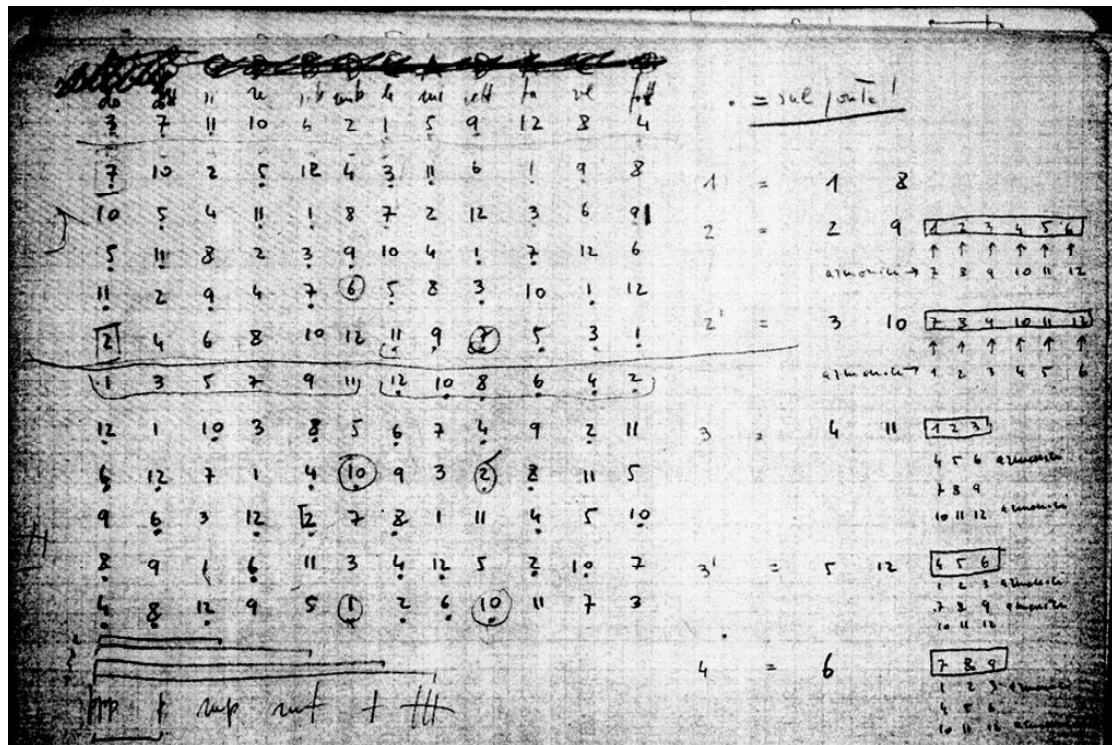 do do# si re sib mib la mi sol# fa sol fa#
3 7 11 10 6 2 1 5 9 12 8 4
7 10 2 5 12 4 3 11 6 1 9 8
10 5 4 11 1 8 7 2 12 3 6 9
5 11 8 2 3 9 10 4 1 7 12 6
11 2 9 4 7 6 5 8 3 10 1 12
2 4 6 8 10 12 11 9 7 5 3 1
1 3 5 7 9 11 12 10 8 6 4 2
12 1 10 3 8 5 6 7 4 9 2 11
6 12 7 1 4 10 9 3 2 8 11 5
9 6 3 12 2 7 8 1 11 4 5 10
8 9 1 6 11 3 4 12 5 2 10 7
4 8 12 9 5 1 2 6 10 11 7 3
ppp p mp mf f fff
. = sul ponte!
1 = 1 8
2 = 2 9 1 2 3 4 5 6
armonici → 7 8 9 10 11 12
2' = 3 10 7 8 9 10 11 12
armonici → 1 2 3 4 5 6
3 = 4 11 1 2 3
4 5 6 armonici
7 8 9
10 11 12 armonici
3' = 5 12 4 5 6
1 2 3 armonici
7 8 9 armonici
10 11 12
4 = 6 7 8 9
1 2 3 armonici
4 5 6
10 11 12 armonici